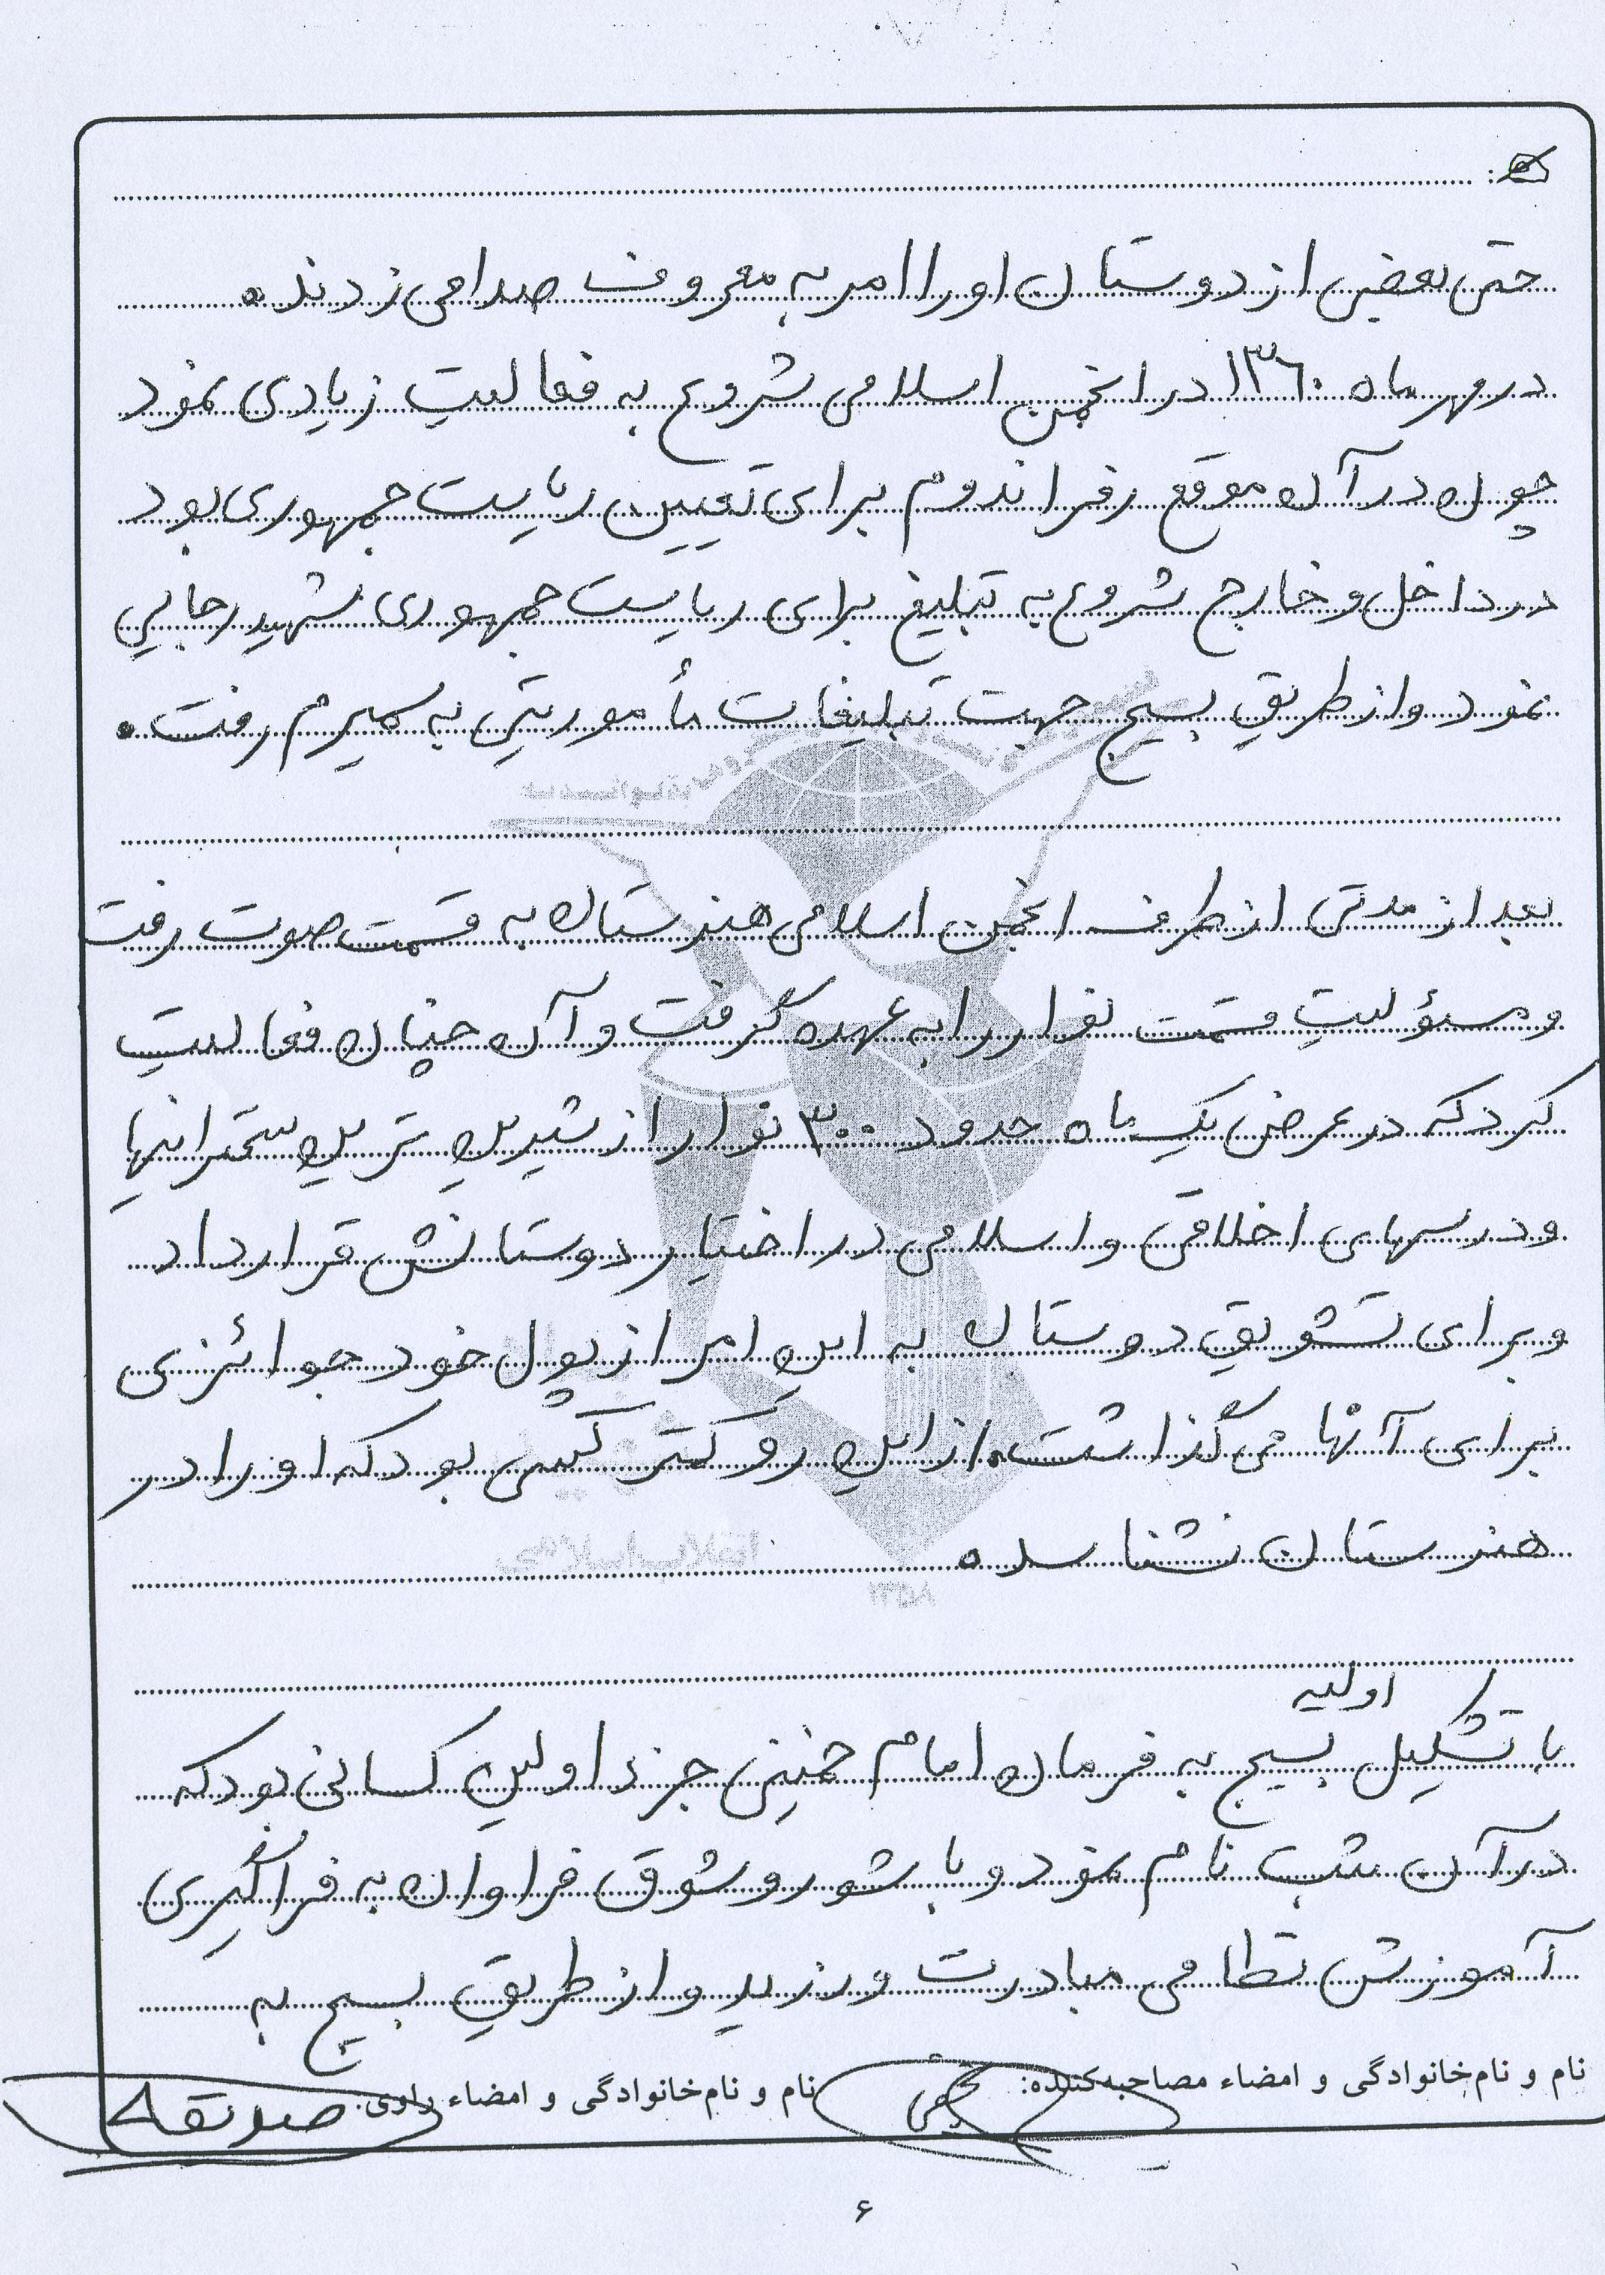 حتی بعضی از دوستان او را امر به معروف صدا می زدند.
در مهر ماه ۱۳۶۰ در انجمن اسلامی شروع به فعالیت زیادی نمود
چون در آن موقع رفراندوم برای تعیین ریاست جمهوری بود
در داخل و خارج شروع به تبلیغ برای ریاست جمهوری شهید رجایی
نمود و از طریق بسیج جهت تبلیغات مأموریتی به سمیرم رفت.
بعد از مدتی از طرف انجمن اسلامی هنرستان به قسمت صوت رفت
و مسؤلیت قسمت نوار را به عهده گرفت و آن چنان فعالیت
کرد که در عرض یک ماه حدود ۳۰۰ نوار از شیرین ترین سخنرانیها
و درسهای اخلاقی و اسلامی در اختیار دوستانش قرار داد
و برای تشویق دوستان به این امر از پول خود جوائزی
برای آنها می گذاشت. از این رو کمتر کسی بود که او را در
هنرستان نشناسد.
اولیه
با تشکیل بسیج به فرمان امام خمینی جزء اولین کسانی بود که
در آن ثبت نام نمود و با شور و شوق فراوان به فراگیری
آموزش نظامی مبادرت ورزید و از طریق بسیج به
نام و نام‌خانوادگی و امضاء مصاحبه‌کننده: نام و نام‌خانوادگی و امضاء راوی: صدیقه
۶